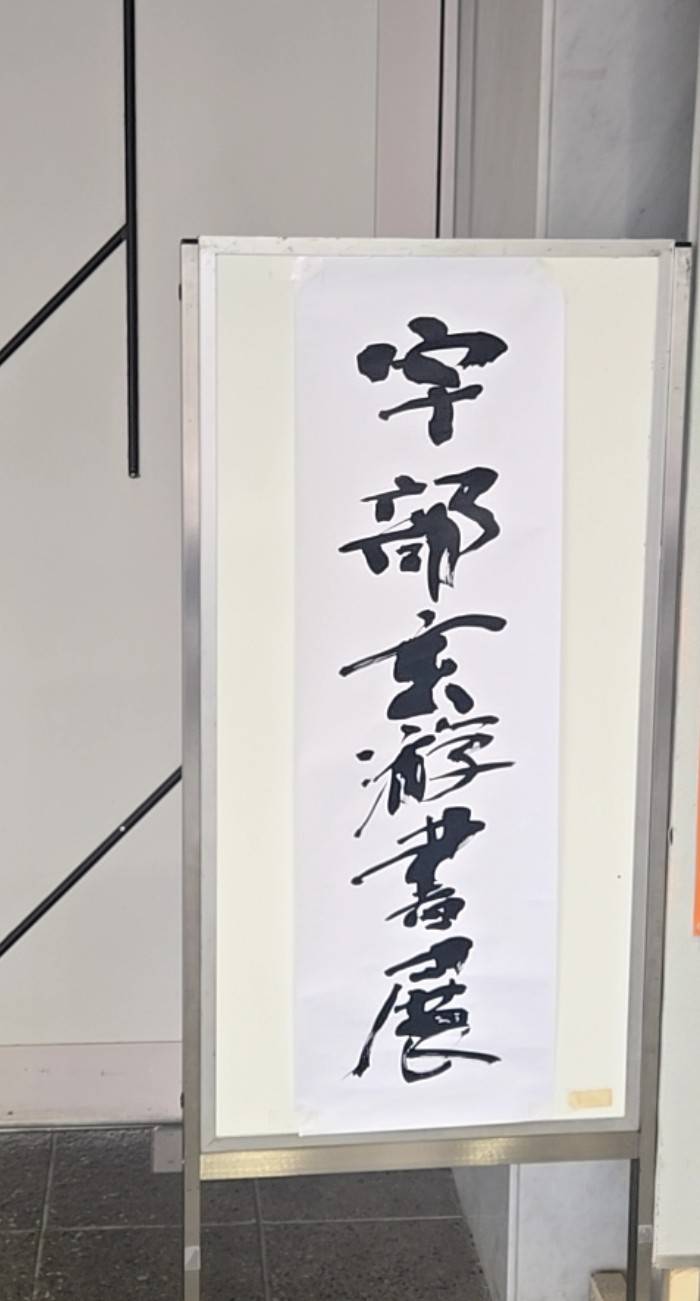 宇部玄游書展